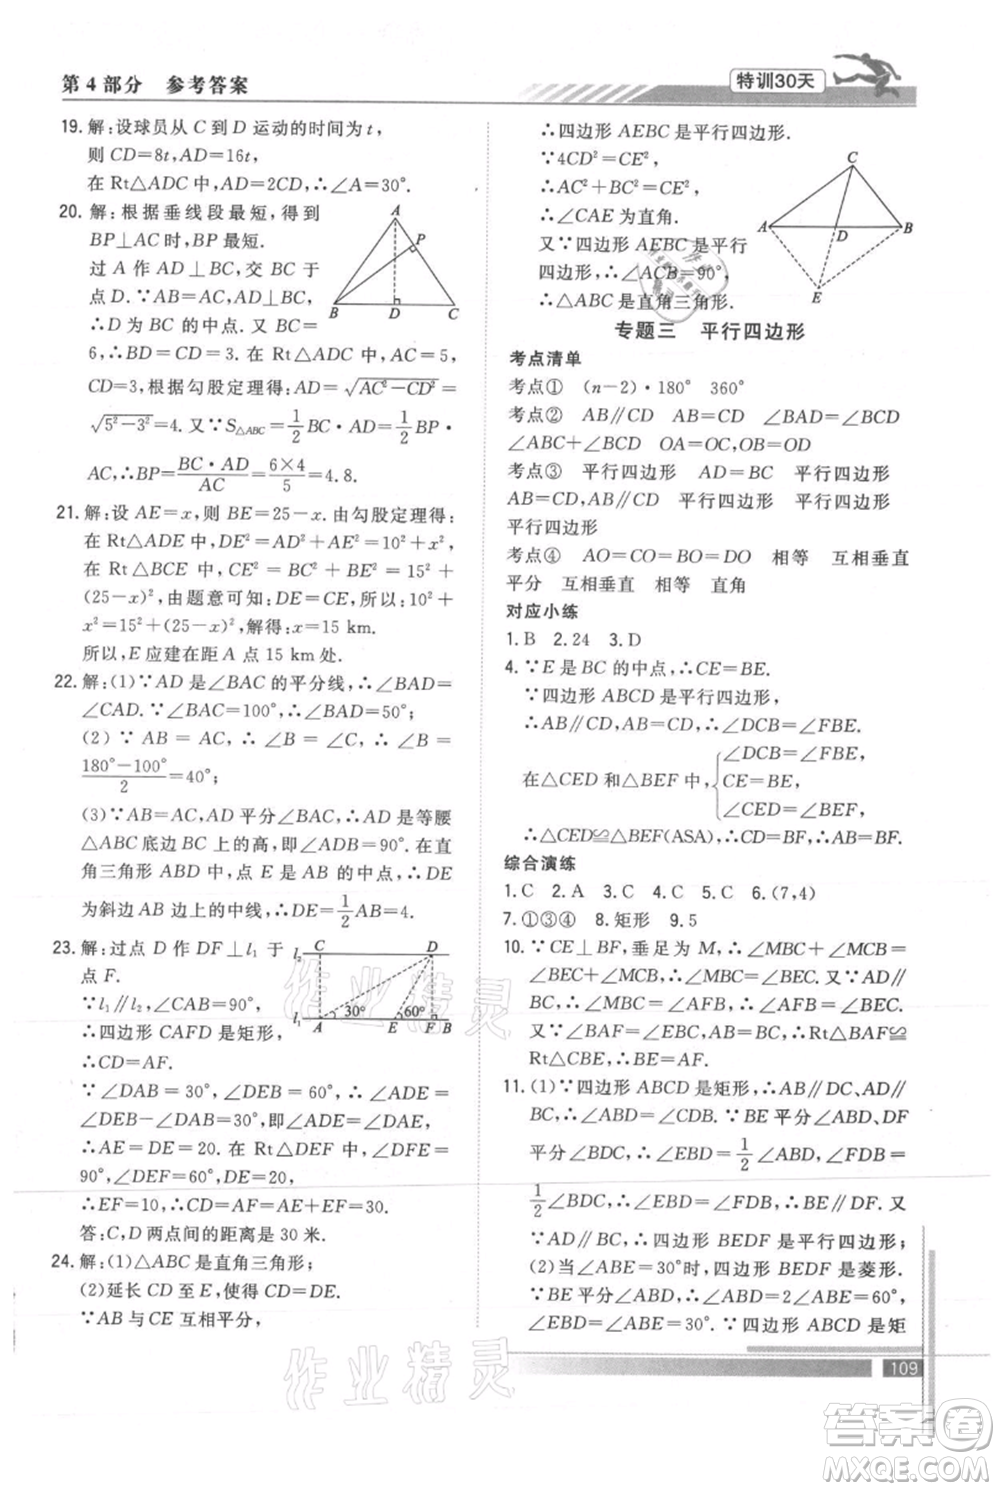 第4部分 参考答案
特训30天
19. 解:设球员从 C 到 D 运动的时间为 t,
则 CD=8t,AD=16t,
在 Rt△ADC 中,AD=2CD,∴∠A=30°.
20. 解:根据垂线段最短,得到
BP⊥AC时,BP 最短.
过 A 作 AD⊥BC,交 BC 于
点 D.∵AB=AC,AD⊥BC,
∴D 为 BC 的中点. 又 BC=
6,∴BD=CD=3. 在 Rt△ADC 中,AC=5,
CD=3,根据勾股定理得:AD=√(AC²-CD²)=
√(5²-3²)=4. 又∵S△ABC=1/2 BC·AD=1/2 BP·
AC,∴BP=BC·AD/AC=6×4/5=4.8.
A
P
B
D
C
21. 解:设 AE=x,则 BE=25-x. 由勾股定理得:
在 Rt△ADE 中,DE²=AD²+AE²=10²+x²,
在 Rt△BCE 中,CE²=BC²+BE²=15²+
(25-x)²,由题意可知:DE=CE,所以:10²+
x²=15²+(25-x)²,解得:x=15 km.
所以,E 应建在距 A 点 15 km处.
22. 解:(1)∵AD 是∠BAC 的平分线,∴∠BAD=
∠CAD.∵∠BAC=100°,∴∠BAD=50°;
(2)∵AB=AC,∴∠B=∠C,∴∠B=
180°-100°/2=40°;
(3)∵AB=AC,AD 平分∠BAC,∴AD 是等腰
△ABC 底边 BC 上的高,即∠ADB=90°. 在直
角三角形 ABD 中,点 E 是 AB 的中点,∴DE
为斜边 AB 边上的中线,∴DE=1/2 AB=4.
23. 解:过点 D 作 DF⊥l₁ 于
点 F.
∵l₁∥l₂,∠CAB=90°,
∴四边形 CAFD 是矩形,
∴CD=AF.
l₂
C
D
l₁
A
30°
E
60°
F
B
∵∠DAB=30°,∠DEB=60°,∴∠ADE=
∠DEB-∠DAB=30°,即∠ADE=∠DAE,
∴AE=DE=20. 在 Rt△DEF 中,∠DFE=
90°,∠DEF=60°,DE=20,
∴EF=10,∴CD=AF=AE+EF=30.
答:C,D 两点间的距离是 30 米.
24. 解:(1)△ABC 是直角三角形;
(2)延长 CD 至 E,使得 CD=DE.
∵AB 与 CE 互相平分,
∴四边形 AEBC 是平行四边形.
∵4CD²=CE²,
∴AC²+BC²=CE²,
∴∠CAE 为直角.
又∵四边形 AEBC 是平行
四边形,∴∠ACB=90°,
∴△ABC 是直角三角形.
C
A
D
B
E
专题三 平行四边形
考点清单
考点① (n-2)·180° 360°
考点② AB∥CD AB=CD ∠BAD=∠BCD
∠ABC=∠BDC OA=OC,OB=OD
考点③ 平行四边形 AD=BC 平行四边形
AB=CD,AB∥CD 平行四边形 平行四边形
平行四边形
考点④ AO=CO=BO=DO 相等 互相垂直
平分 互相垂直 相等 直角
对应小练
1. B 2. 24 3. D
4. ∵E 是 BC 的中点,∴CE=BE.
∵四边形 ABCD 是平行四边形,
∴AB∥CD,AB=CD,∴∠DCB=∠FBE.
在△CED 和△BEF 中,{∠DCB=∠FBE,
CE=BE,
∠CED=∠BEF,
∴△CED≌△BEF(ASA),∴CD=BF,∴AB=BF.
综合演练
1. C 2. A 3. C 4. C 5. C 6. (7,4)
7. ①③④ 8. 矩形 9. 5
10. ∵CE⊥BF,垂足为 M,∴∠MBC+∠MCB=
∠BEC+∠MCB,∴∠MBC=∠BEC.
又∵AD∥BC,∴∠MBC=∠AFB,∴∠AFB=∠BEC.
又∵∠BAF=∠EBC,AB=BC,∴Rt△BAF≌
Rt△CBE,∴AF=BE.
11. (1)∵四边形 ABCD 是矩形,∴AB∥DC、AD∥
BC,∴∠ABD=∠CDB.∵BE 平分∠ABD,DF
平分∠BDC,∴∠EBD=1/2∠ABD,∠FDB=
1/2∠BDC,∴∠EBD=∠FDB,∴BE∥DF. 又
∵AD∥BC,∴四边形 BEDF 是平行四边形;
(2)当∠ABE=30°时,四边形 BEDF 是菱形.
∵BE 平分∠ABD,∴∠ABD=2∠ABE=60°,
∠EBD=∠ABE=30°.∵四边形 ABCD 是矩
109
作业精灵
作业精灵
答案卷
MXQE.COM